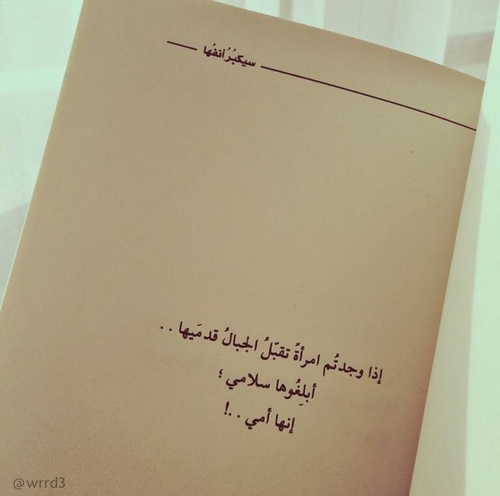 سيكبُرُ أنفُها
إذا وجدتُم امرأةً تقبّلُ الجبالُ قدمَيها . .
أبلِغُوها سلامي ؛
إنها أمي . .!
@wrrd3